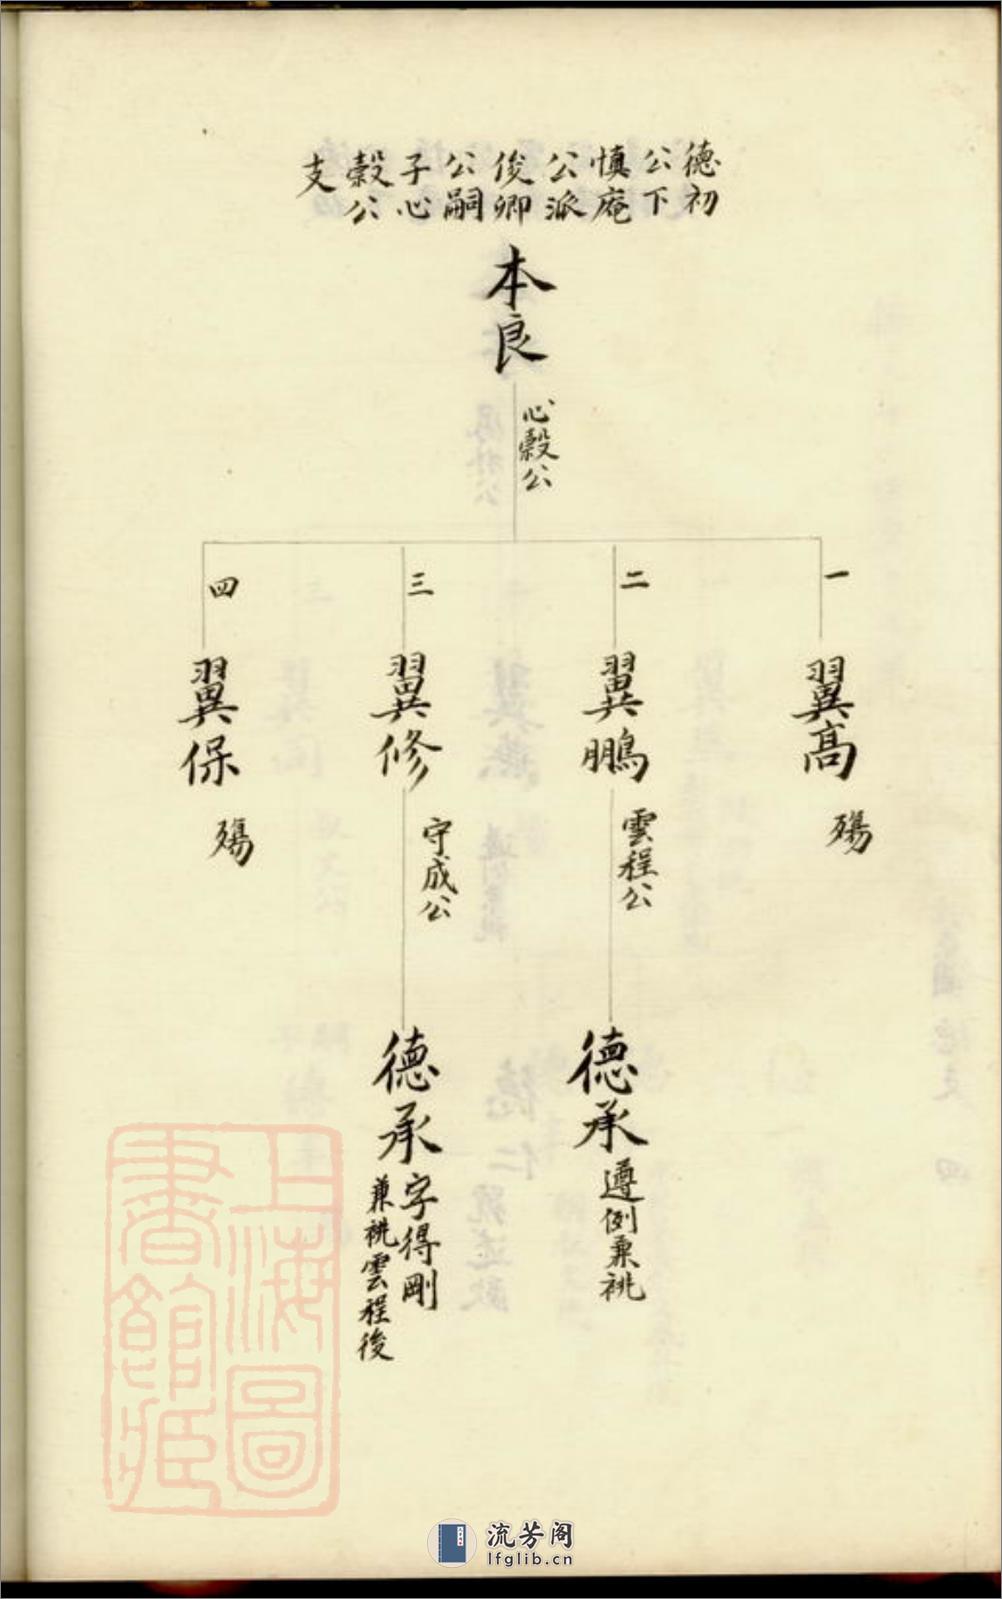 德初
公下
慎庵
公派
俊卿
公嗣
子心
穀公
支
本良
心穀公
一
翼高
殤
二
翼鵬
雲程公
德承
遵例兼祧
三
翼修
守成公
德承
字得剛
兼祧雲程後
四
翼保
殤
上海圖
書館藏
流芳阁
lfglib.cn